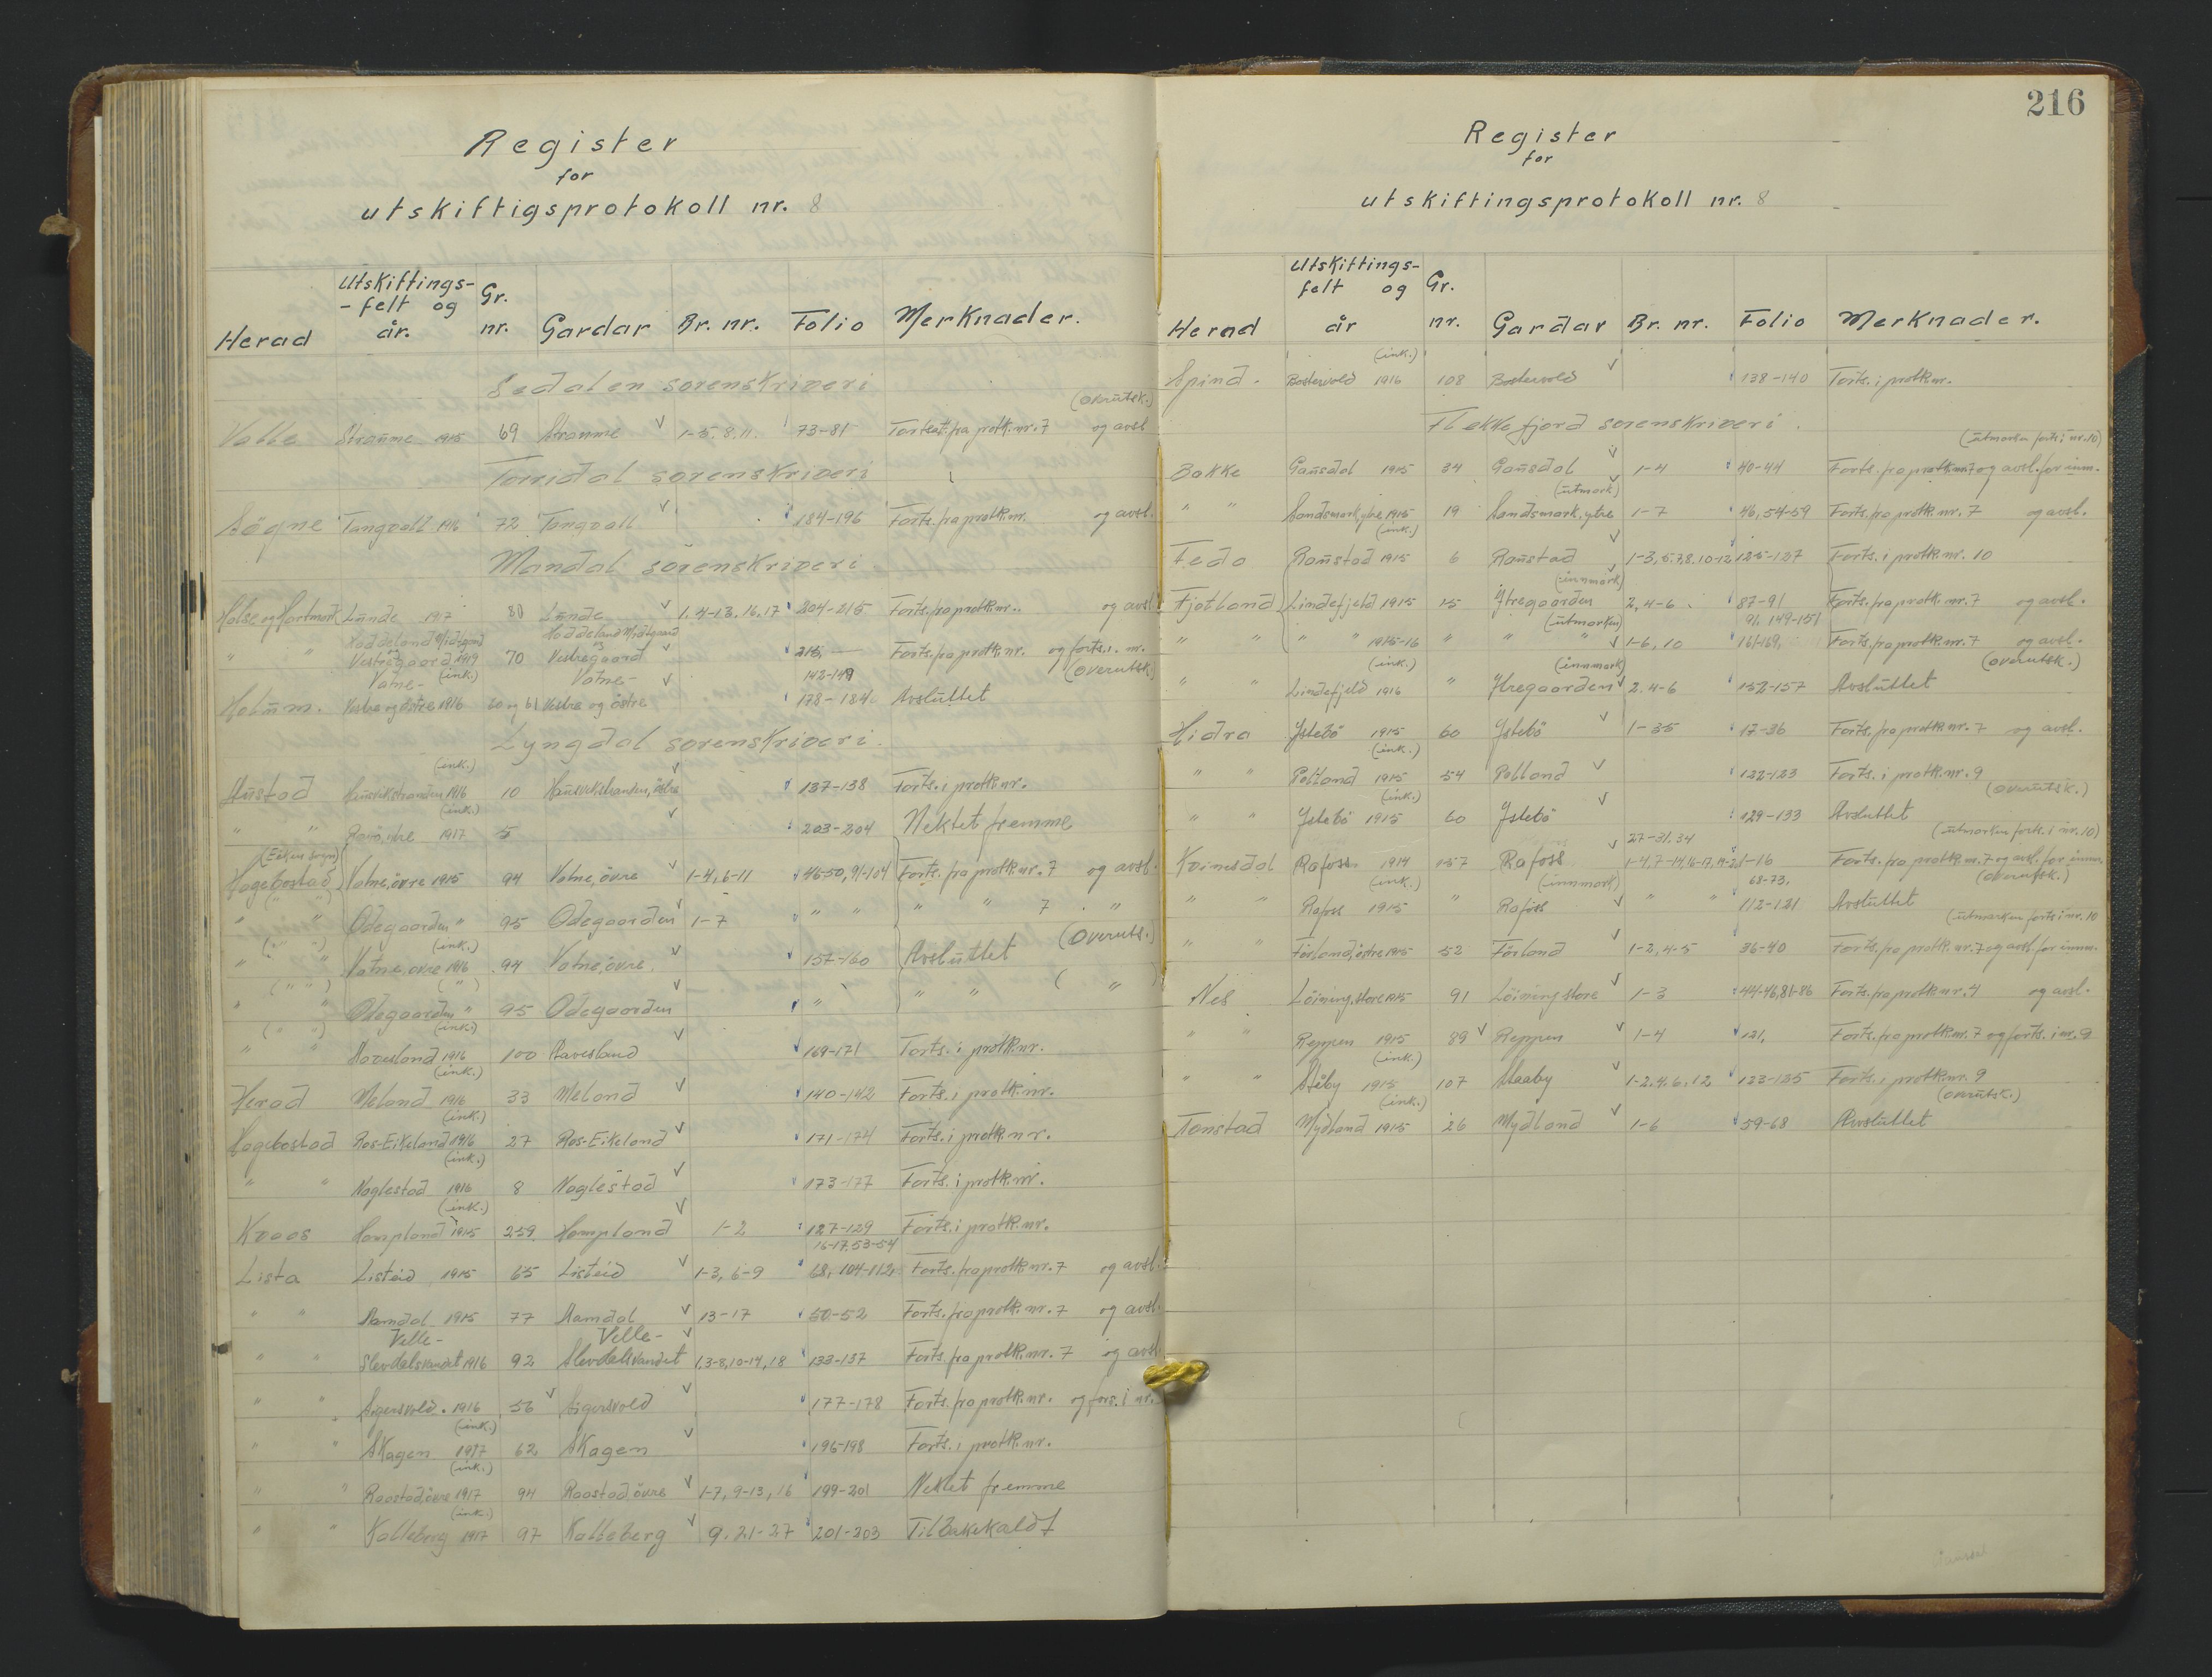 Register
for
utskiftigsprotokoll nr. 8
Herad Utskiftings- -felt og år. Gr. nr. Gardar Br. nr. Folio Merknader.
Sedalen sorenskriveri
(overutsk.)
Valle Straume 1915 69 Straume 1-5. 8. 11. 73-81 Fortsat. fra protk. nr. 7 og avsl.
Torridal sorenskriveri
Søgne Tangvall 1916 72 Tangvall 184-196 Forts. fra protk. nr. og avsl.
Mandal sorenskriveri
Halse og Hartmark Lunde 1917 80 Lunde 1, 4-13, 16, 17 204-215 Forts. fra protk. nr. og avsl.
Haddeland Midtgaard og Haddeland Midtgaard og
" " Vestregaard 1919 70 Vestregaard 215, — Forts. fra protk. nr. og forts. i. nr.
Vatne- (ink.) Vatne- 142-149 (overutsk.)
Holum. Vestre og östre 1916 60 og 61 Vestre og östre 178-184 Avsluttet
Lyngdal sorenskriveri.
(ink.)
Austad 1916 10 137-138 Forts. i protk. nr.
(ink.)
" " 1917 5 203-204 Nektet fremme
(Eiken sogn)
Hægebostad Vatne, övre 1915 94 Vatne, övre 1-4, 6-11 46-50, 91-104 Forts. fra protk. nr. 7 og avsl.
(" ")
" " Ödegaarden " 95 Ödegaarden 1-7 " " " " 7 . "
(" ") (ink.) (Overuts.)
" " Vatne, övre 1916 94 Vatne, övre 157-160 Avsluttet
(" ") (") ( " )
" " Ödegaarden " 95 Ödegaarden " " "
(" ") (ink.)
" " 1916 100 169-171 Forts. i protk. nr.
(ink.)
Herad Meland 1916 33 Meland 140-142 Forts. i protk. nr.
(ink.)
Hægebostad Ros-Eikeland 1916 27 Ros-Eikeland 171-174 Forts. i protk. nr.
(ink.)
" " Naglestad 1916 8 Naglestad 173-177 Forts. i protk. nr.
(ink.)
Kvaas Hompland 1915 259 Hompland 1-2 127-129 Forts. i protk. nr.
16-17, 53-54
Lista Listeid 1915 65 Listeid 1-3, 6-9 68, 104-112 Forts. fra protk. nr. 7 og avsl.
" " 1915 77 13-17 50-52 Forts. fra protk. nr. 7 og avsl.
Velle- Velle-
" " Slevdalsvandet 1916 92 Slevdalsvandet 1, 3-8, 10-14, 18 133-137 Forts. fra protk. nr. 7 og avsl.
" " Sigersvold. 1916 56 Sigersvold 177-178 Forts. fra protk. nr. og fors. i nr.
(ink.)
" " Skagen 1917 62 Skagen 196-198 Forts. i protk. nr.
(ink.)
" " Raastad, övre 1917 94 Raastad, övre 1-7, 9-13, 16 199-201 Nektet fremme
(ink.)
" " Kalleberg 1917 97 Kalleberg 9. 21-27 201-203 Tilbakekaldt
216
Register
for
utskiftingsprotokoll nr. 8
Herad Utskiftings- felt og år Gr. nr. Gardar Br. nr. Folio Merknader.
(ink.)
Spind. Bostervold 1916 108 Bostervold 138-140 Forts. i protk. nr.
Flekkefjord sorenskriveri.
(utmarka forts. i nr. 10)
Bakke Gausdal 1915 34 Gausdal 1-4 40-44 Forts. fra protk. nr. 7 og avsl. for inm.
(utmark)
" " Sandsmark, ytre 1915 19 Sandsmark, ytre 1-7 46, 54-59 Forts. fra protk. nr. 7 og avsl.
(ink.)
Feda Raustad 1915 6 Raustad 1-3, 5. 7, 8. 10-12 125-127 Forts. i protk. nr. 10
(innmark)
Fjotland Lindefjeld 1915 15 Ytregaarden 2, 4-6. 87-91 Forts. fra protk. nr. 7 og avsl.
(utmarken) 91, 149-151
" " " " 1915-16 " " " 1-6, 10 161-169, Forts. fra protk. nr. 7 og avsl.
(ink.) (innmark) (overutsk.)
" " Lindefjeld 1916 " Ytregaarden 2, 4-6 152-157 Avsluttet
Hidra Ystebö 1915 60 Ystebö 1-35 17-36 Forts. fra protk. nr. 7 og avsl.
(ink.)
" " Petland 1915 54 Petland 122-123 Forts. i protk. nr. 9
(ink.) (overutsk.)
" " Ystebö 1915 60 Ystebö 129-133 Avsluttet
27-31, 34 (utmarken forts. i nr. 10)
Kvinesdal Rafoss 1914 157 Rafoss 1-4, 7-14, 16-17, 19-25 1-16 Forts. fra protk. nr. 7 og avsl. for innm.
(ink.) (innmark) 68-73, (overutsk.)
" " Rafoss 1915 " Rafoss " " 112-121 Avsluttet
(utmarken forts i nr. 10
" " Förland, östre 1915 52 Förland 1-2, 4-5 36-40 Forts. fra protk. nr. 7 og avsl. for innm.
Nes Löining, store 1915 91 Löining, store 1-3 44-46, 81-86 Forts. fra protk. nr. 4 og avsl.
" " Reppen 1915 89 Reppen 1-4 121, Forts. fra protk. nr. 7 og forts. i nr. 9
(ink.)
" " Ståby 1915 107 Staaby 1-2. 4. 6. 12 123-125 Forts. i protk. nr. 9
(ink.) (overutsk.)
Tonstad Mydland 1915 26 Mydland 1-6 59-68 Avsluttet